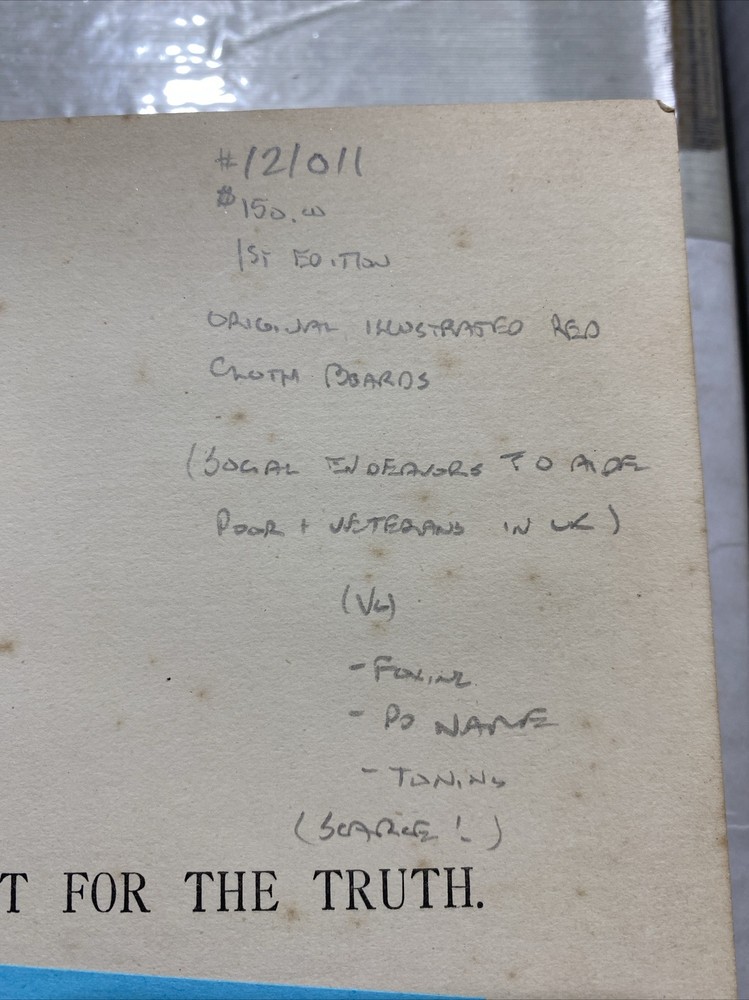 #12/011
$150.00
1ST EDITION
ORIGINAL ILLUSTRATED RED
CLOTH BOARDS
(SOCIAL ENDEAVORS TO AIDE
POOR + VETERANS IN UK)
(VG)
- FOXING
- PO NAME
- TONING
(SCARCE!)
T FOR THE TRUTH.